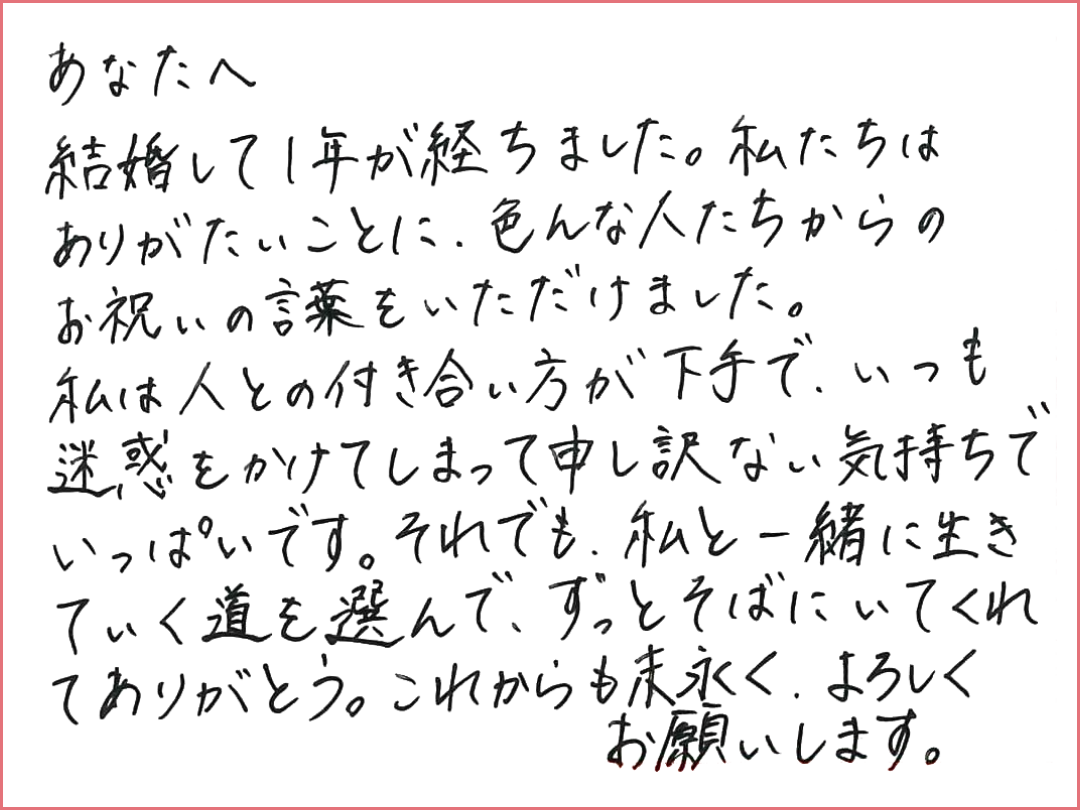 あなたへ
結婚して1年が経ちました。私たちは
ありがたいことに、色んな人たちからの
お祝いの言葉をいただけました。
私は人との付き合い方が下手で、いつも
迷惑をかけてしまって申し訳ない気持ちで
いっぱいです。それでも、私と一緒に生き
ていく道を選んで、ずっとそばにいてくれ
てありがとう。これからも末永く、よろしく
お願いします。